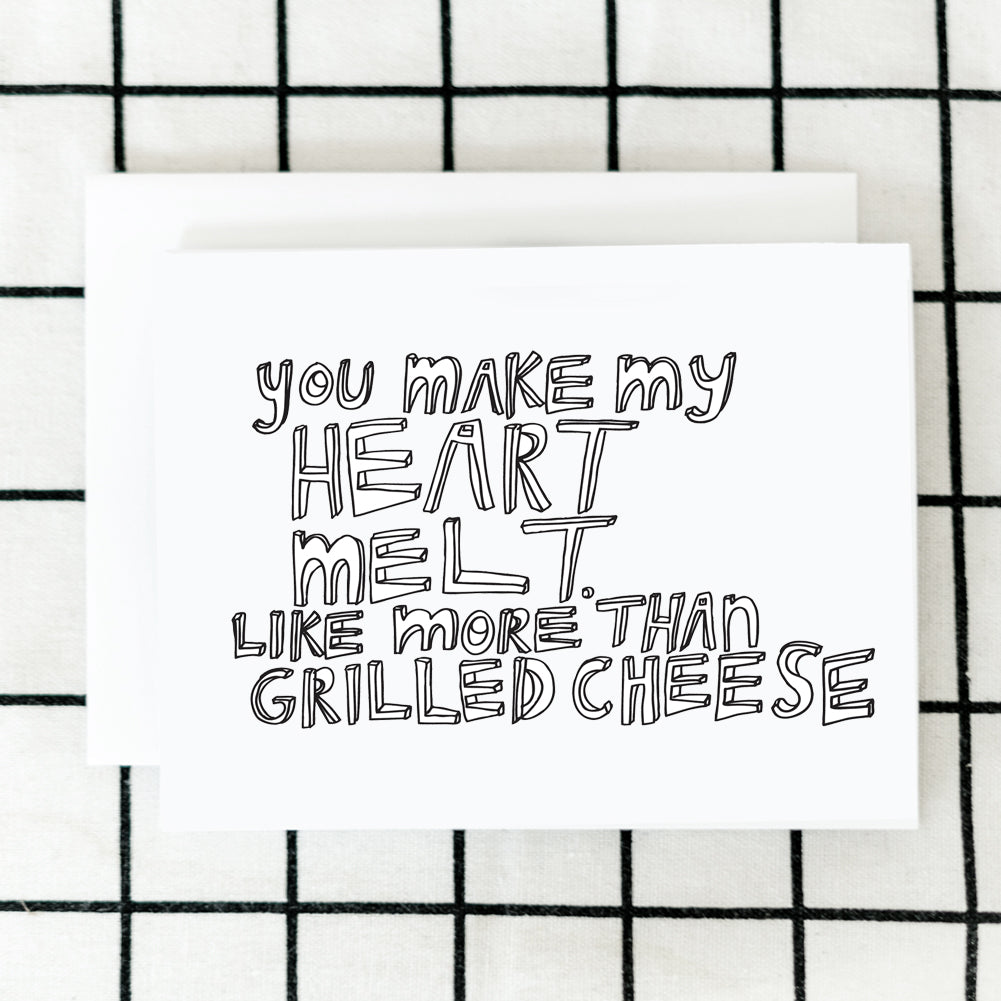 you mAKE my
HEART
mELT.
LIKE mORE THAn
GRILLED CHEESE